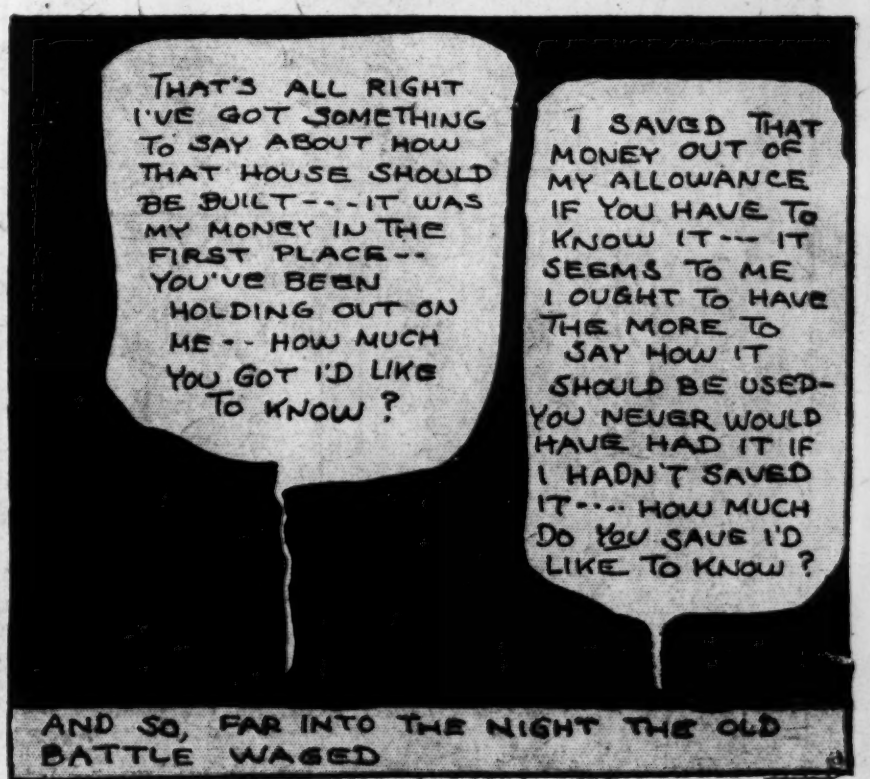 THAT'S ALL RIGHT
I'VE GOT SOMETHING
TO SAY ABOUT HOW
THAT HOUSE SHOULD
BE BUILT---IT WAS
MY MONEY IN THE
FIRST PLACE--
YOU'VE BEEN
HOLDING OUT ON
ME-- HOW MUCH
YOU GOT I'D LIKE
TO KNOW?
I SAVED THAT
MONEY OUT OF
MY ALLOWANCE
IF YOU HAVE TO
KNOW IT--- IT
SEEMS TO ME
I OUGHT TO HAVE
THE MORE TO
SAY HOW IT
SHOULD BE USED-
YOU NEVER WOULD
HAVE HAD IT IF
I HADN'T SAVED
IT---- HOW MUCH
DO YOU SAVE I'D
LIKE TO KNOW?
AND SO, FAR INTO THE NIGHT THE OLD
BATTLE WAGED